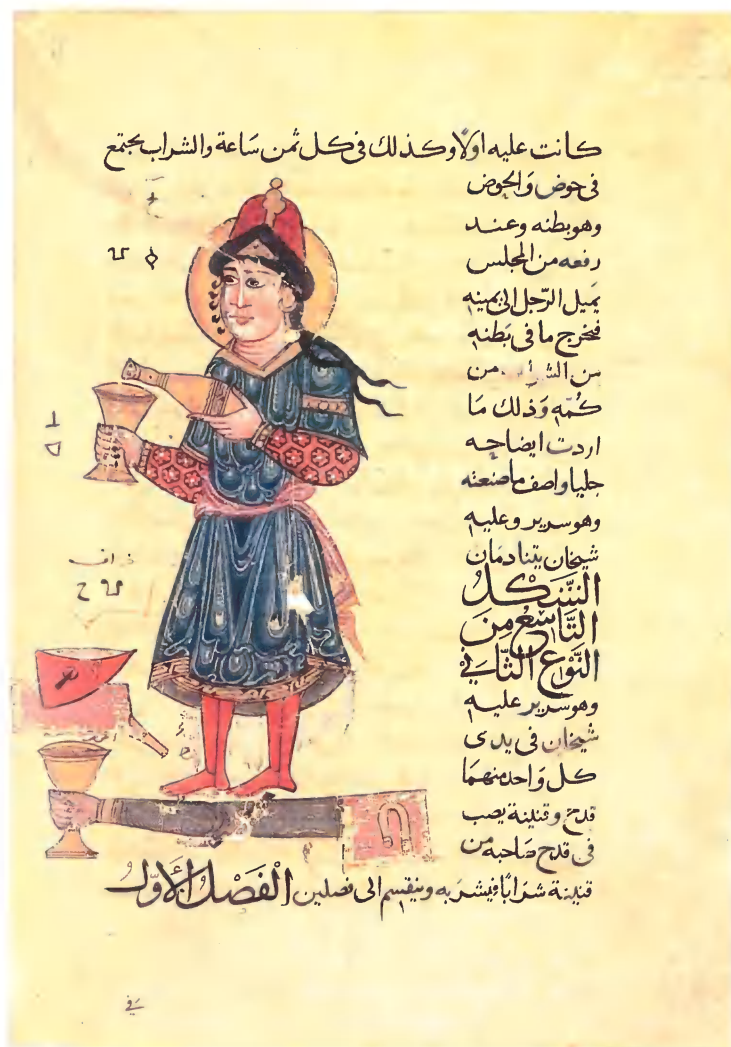 كانت عليه اولا وكذلك في كل ثمن ساعة والشراب يجتمع
في حوض والحوض
وهو بطنه وعند
رفعه من المجلس
يميل الرجل الى يمينه
فيخرج ما في بطنه
من من
كمه وذلك ما
اردت ايضاحه
جليا واصف ما صنعته
وهو سرير وعليه
شيخان يتنادمان
الشكل
التاسع من
النوع الثاني
وهو سرير عليه
شيخان في يدي
كل واحد منهما
قدح وقنينة يصب
في قدح صاحبه من
قنينة شرابا فيشربه وينقسم الى فصلين الفصل الاول
في